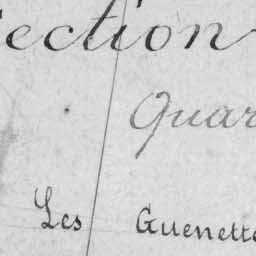 ection
Quar
Les Guenette